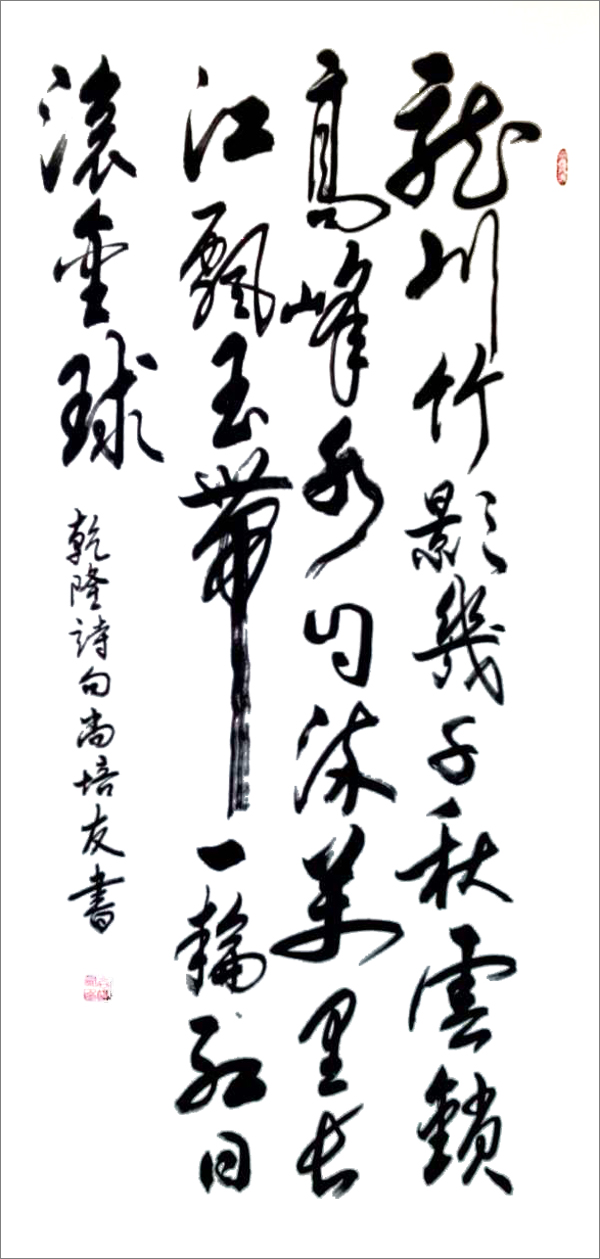 龍川竹影幾千秋雲鎖
高峰水自流萬里長
江飄玉帶一輪紅日
滾金球
乾隆詩句尚培友書